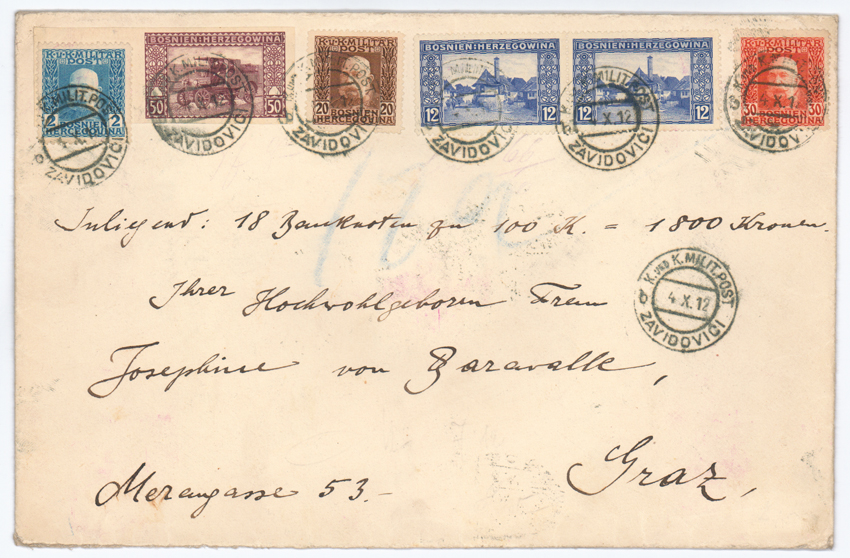 K.u.K. MILITÄR POST
2 2
BOSNIEN HERCEGOVINA
BOSNIEN:HERZEGOWINA
50 50
K.u.K. MILITÄR POST
20 20
BOSNIEN HERCEGOVINA
BOSNIEN:HERZEGOWINA
12 12
BOSNIEN:HERZEGOWINA
12 12
K.u.K. MILITÄR POST
30 30
BOSNIEN HERCEGOVINA
K. UND K. MILIT. POST
4 X. 12
ZAVIDOVIĆI
Inliegend: 18 Banknoten zu 100 K. = 1800 Kronen.
K. UND K. MILIT. POST
4 X. 12
ZAVIDOVIĆI
Ihrer Hochwohlgeboren Frau
Josephine von Baravalle,
Merangasse 53.-
Graz,